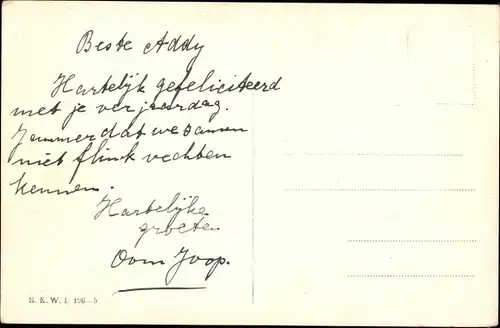 Beste Addy
Hartelijk gefeliciteerd
met je verjaardag.
Jammer dat we samen
niet flink vechten
kennen.
Hartelijke
groeten
Oom Joop.
B. K. W. I. 126-5